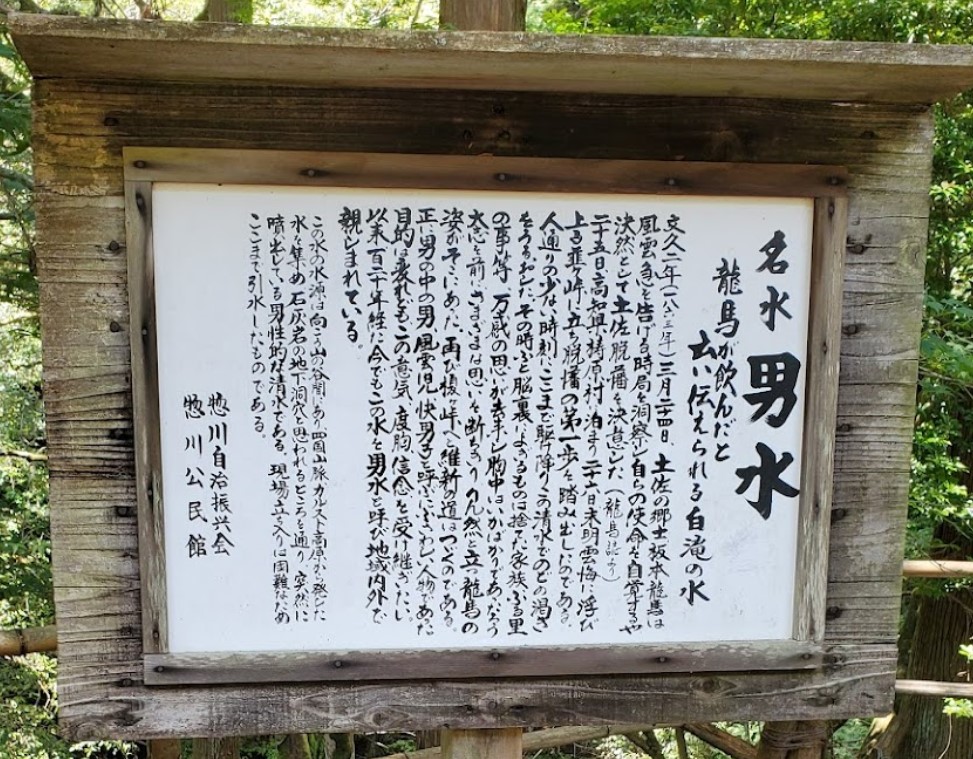 名水 男水
龍馬が飲んだと
云い伝えられる白滝の水
文久二年(一八六三年)三月二十四日、土佐の郷士坂本龍馬は
風雲急を告げる時局を洞察し自らの使命を自覚するや
決然として土佐脱藩を決意した(龍馬記より)
二十五日、高知県梼原村に泊まり二十六日未明雲海に浮び
上る韮ヶ峠に立ち脱藩の第一歩を踏み出したのである。
人通りの少ない時刻にここまで駆け降りこの清水でのどの渇き
をうるおしたその時ふと脳裏によぎるものは捨てた家族、ふる里
の事等 万感の思いが去来し胸中はいかばかりであったろう
大志を前にさまざまな思いを断ちきり凡然と立つ龍馬の
姿がそこにあった、再び榎ヶ峠へ維新の道はつづくのである。
正に男の中の男、風雲児、快男子と呼ぶにふさわしい人物であった
目的は違えどもこの意気、度胸、信念を受け継ぎたい。
以来百二十年経た今でもこの水を男水と呼び地域内外で
親しまれている。
この水の水源は向こう山の谷間にあり、四国山脈カルスト高原から発した
水を集め石灰岩の地下洞穴と思われるところを通り、突然に
噴出している男性的な清水である。現場立ち入りは困難なため
ここまで引水したものである。
惣川自治振興会
惣川公民館